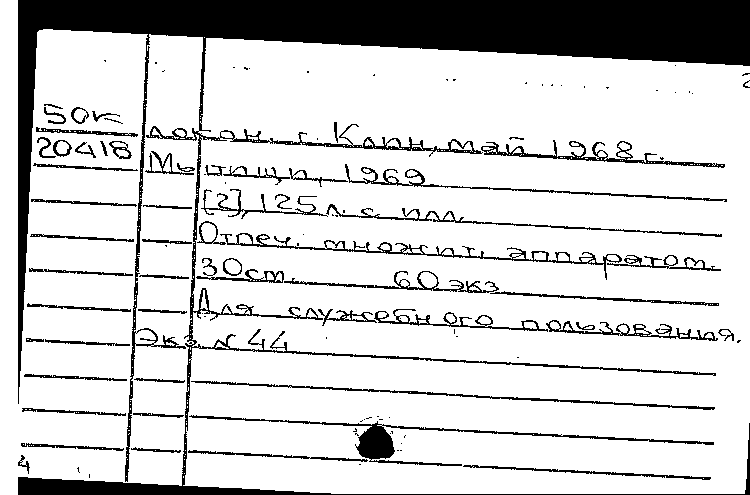 2
50к
локон. г. Клин, май 1968 г.
20418 Мытищи, 1969.
[2], 125 л. с илл.
Отпеч. множит. аппаратом.
30см. 60 экз
Для служебного пользования.
Экз. N 44
4